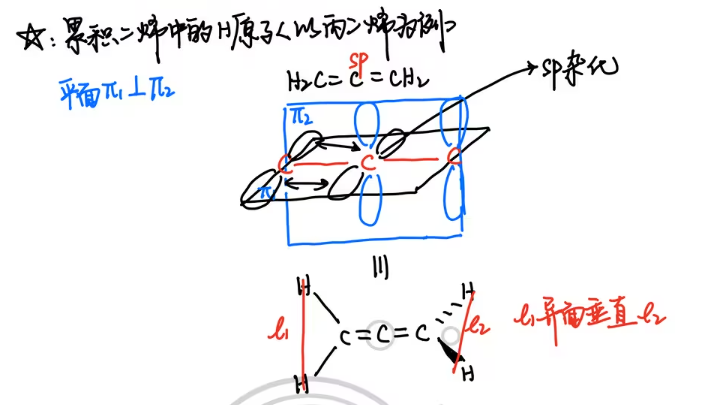 ☆:累积二烯中的H原子<以丙二烯为例>
平面π₁⊥π₂
sp
H₂C=C=CH₂
sp杂化
π₂
C C C
π₁
H H
l₁ C=C=C l₂
H H
l₁异面垂直l₂